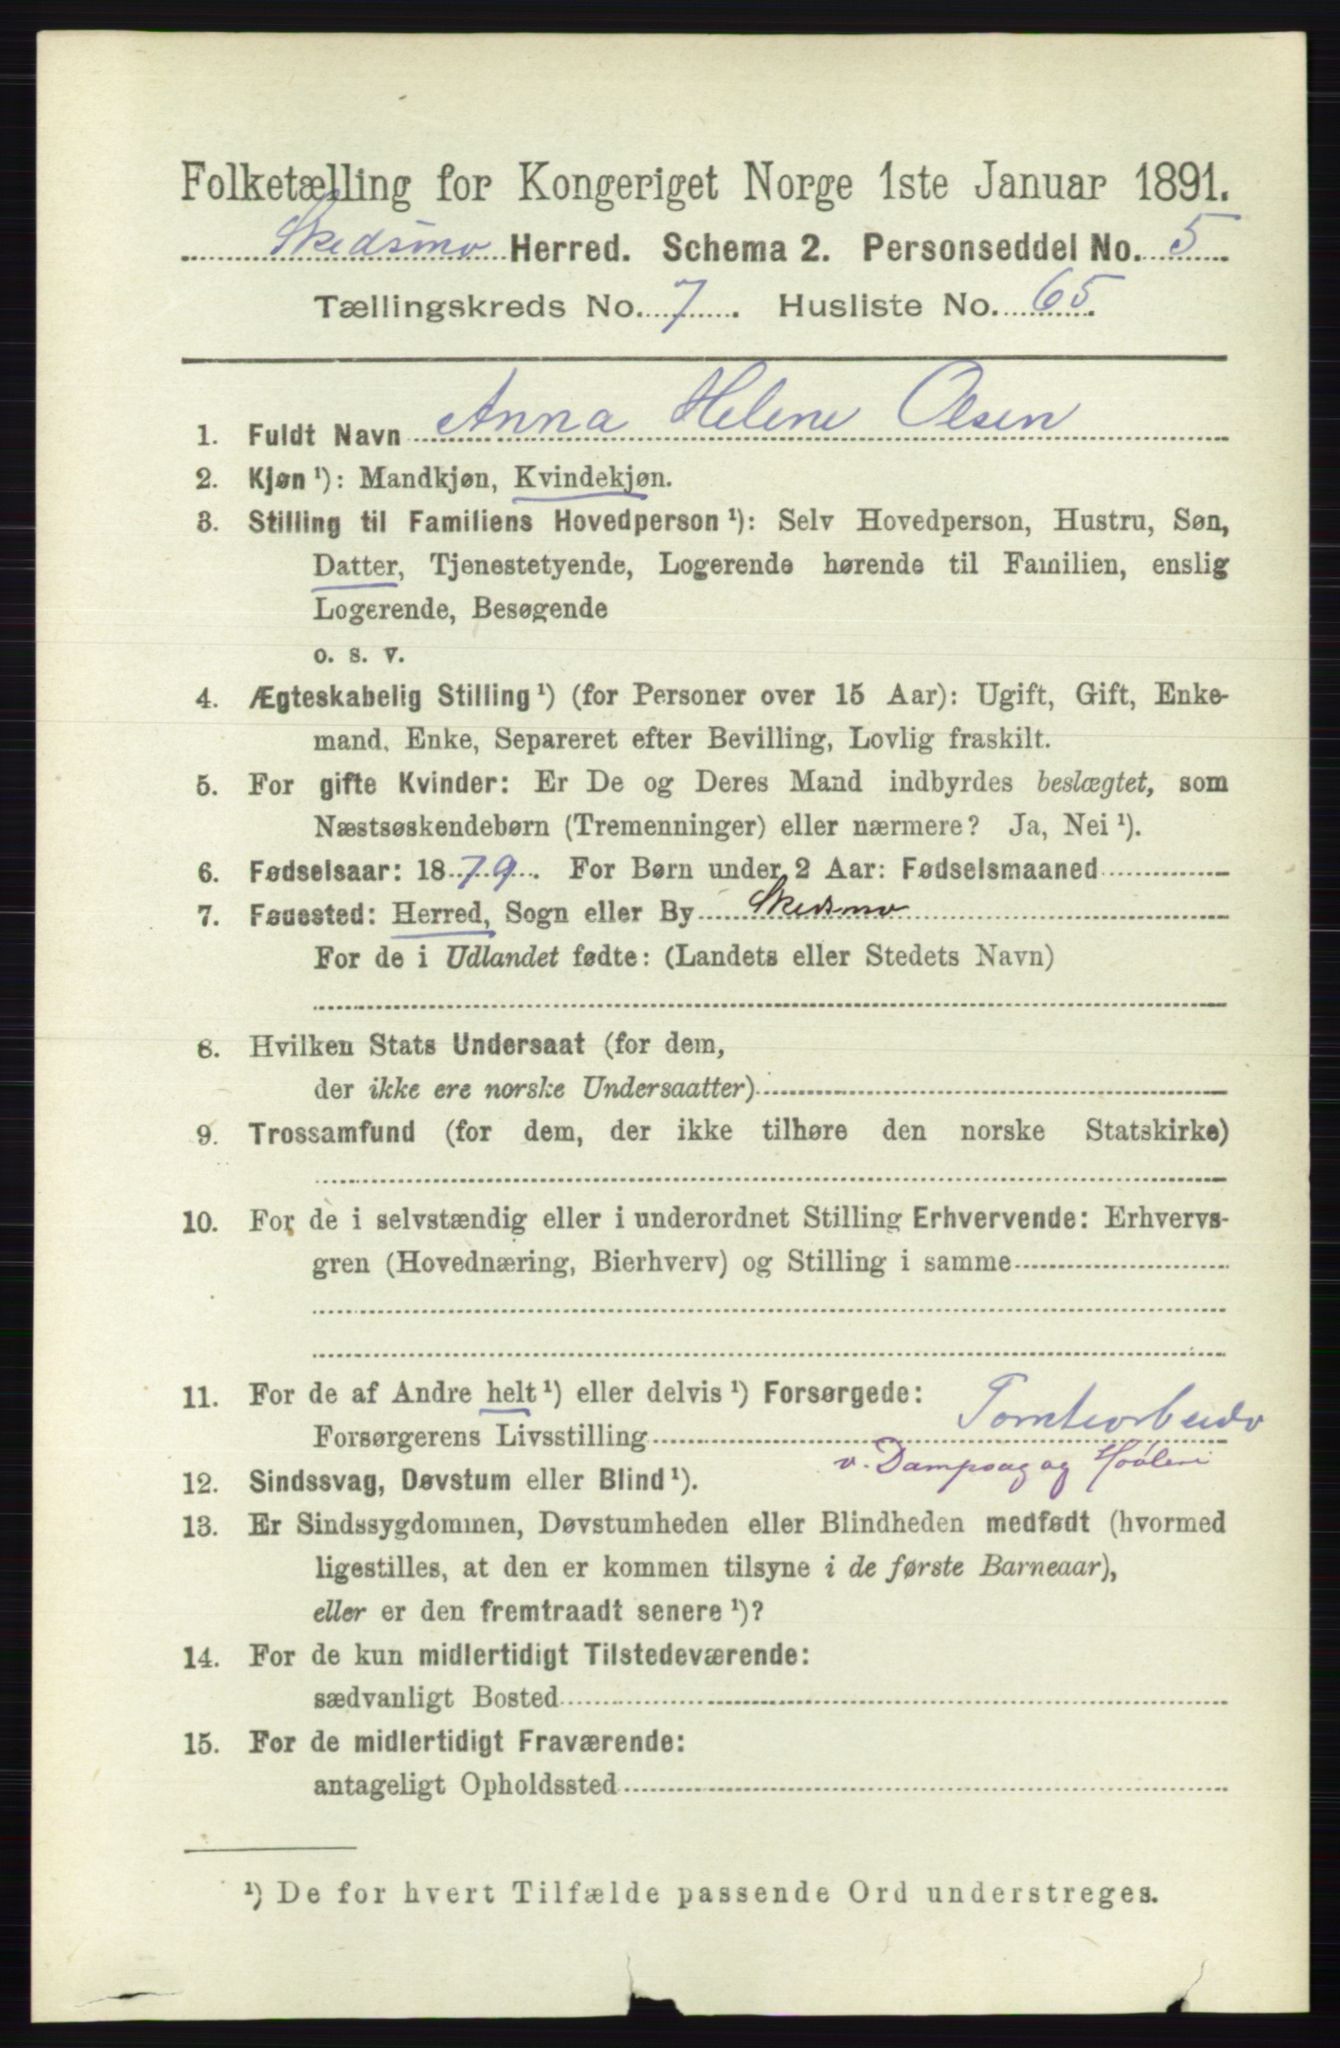 Folketælling for Kongeriget Norge 1ste Januar 1891.
Skedsmo Herred. Schema 2. Personseddel No. 5
Tællingskreds No. 7. Husliste No. 65.
1. Fuldt Navn Anna Helene Olsen
2. Kjøn ¹): Mandkjøn, Kvindekjøn.
3. Stilling til Familiens Hovedperson ¹): Selv Hovedperson, Hustru, Søn,
Datter, Tjenestetyende, Logerende hørende til Familien, enslig
Logerende, Besøgende
o. s. v.
4. Ægteskabelig Stilling ¹) (for Personer over 15 Aar): Ugift, Gift, Enke-
mand, Enke, Separeret efter Bevilling, Lovlig fraskilt.
5. For gifte Kvinder: Er De og Deres Mand indbyrdes beslægtet, som
Næstsøskendebørn (Tremenninger) eller nærmere? Ja, Nei ¹).
6. Fødselsaar: 1879. For Børn under 2 Aar: Fødselsmaaned
7. Fødested: Herred, Sogn eller By Skedsmo
For de i Udlandet fødte: (Landets eller Stedets Navn)
8. Hvilken Stats Undersaat (for dem,
der ikke ere norske Undersaatter)
9. Trossamfund (for dem, der ikke tilhøre den norske Statskirke)
10. For de i selvstændig eller i underordnet Stilling Erhvervende: Erhvervs-
gren (Hovednæring, Bierhverv) og Stilling i samme
11. For de af Andre helt ¹) eller delvis ¹) Forsørgede:
Forsørgerens Livsstilling Tomtearbeider
v. Dampsag og Høvleri
12. Sindssvag, Døvstum eller Blind ¹).
13. Er Sindssygdommen, Døvstumheden eller Blindheden medfødt (hvormed
ligestilles, at den er kommen tilsyne i de første Barneaar),
eller er den fremtraadt senere ¹)?
14. For de kun midlertidigt Tilstedeværende:
sædvanligt Bosted
15. For de midlertidigt Fraværende:
antageligt Opholdssted
¹) De for hvert Tilfælde passende Ord understreges.